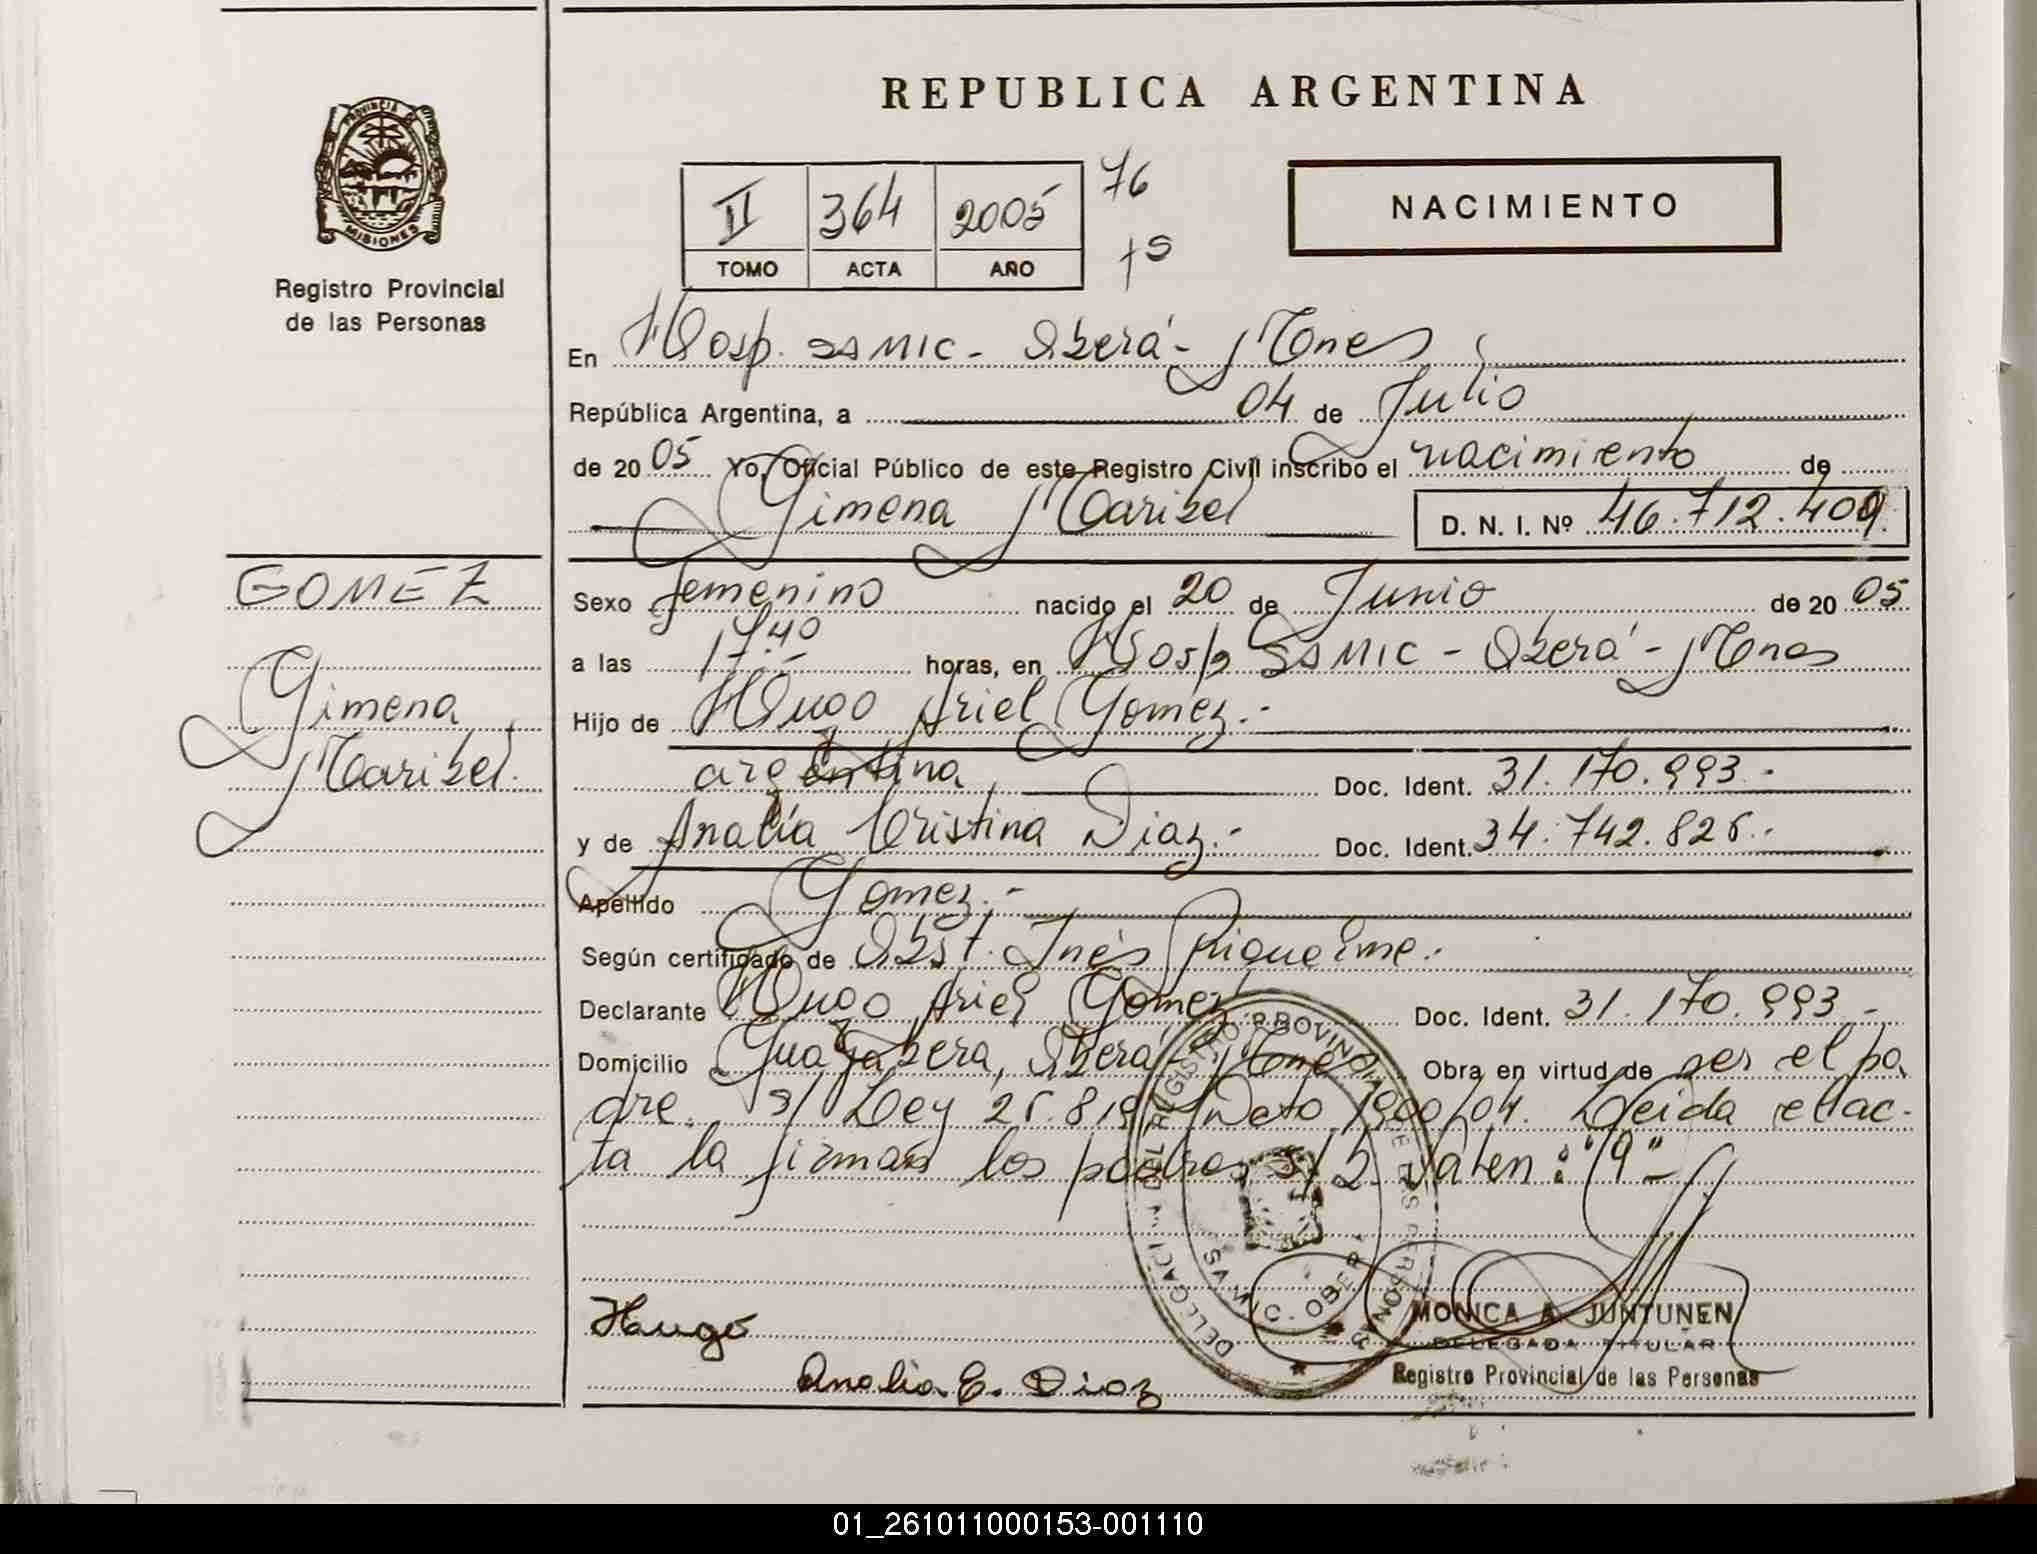 REPUBLICA ARGENTINA
PROVINCIA DE
MISIONES
Registro Provincial
de las Personas
II 364 2005 76
TOMO ACTA AÑO
NACIMIENTO
En Hosp. SAMIC - Oberá - Mnes
República Argentina, a 04 de Julio
de 2005 Yo, Oficial Público de este Registro Civil inscribo el nacimiento de
Gimena Maribel D. N. I. Nº 46.712.409
GOMEZ
Gimena
Maribel.
Sexo femenino nacido el 20 de Junio de 2005
a las 17.40 horas, en Hosp SAMIC - Oberá - Mnes
Hijo de Hugo Ariel Gomez.-
argentina Doc. Ident. 31.170.993.-
y de Analía Cristina Diaz.- Doc. Ident. 34.742.825.-
Apellido Gomez.-
Según certificado de Obst. Inés Riquelme.-
Declarante Hugo Ariel Gomez Doc. Ident. 31.170.993.-
Domicilio Guayabera, Oberá - Mnes Obra en virtud de ser el pa
dre. s/ Ley 25.819 Dcto 1900/04. Leida el ac-
ta la firman los padres s/ Valen: "9"-
DELEGACI DEL REGISTRO PROVINCIAL DE LAS PERSONAS
SAMIC. OBERA
Hugo
Analia C. Diaz
MONICA A. JUNTUNEN
DELEGADA TITULAR
Registro Provincial de las Personas
01_261011000153-001110